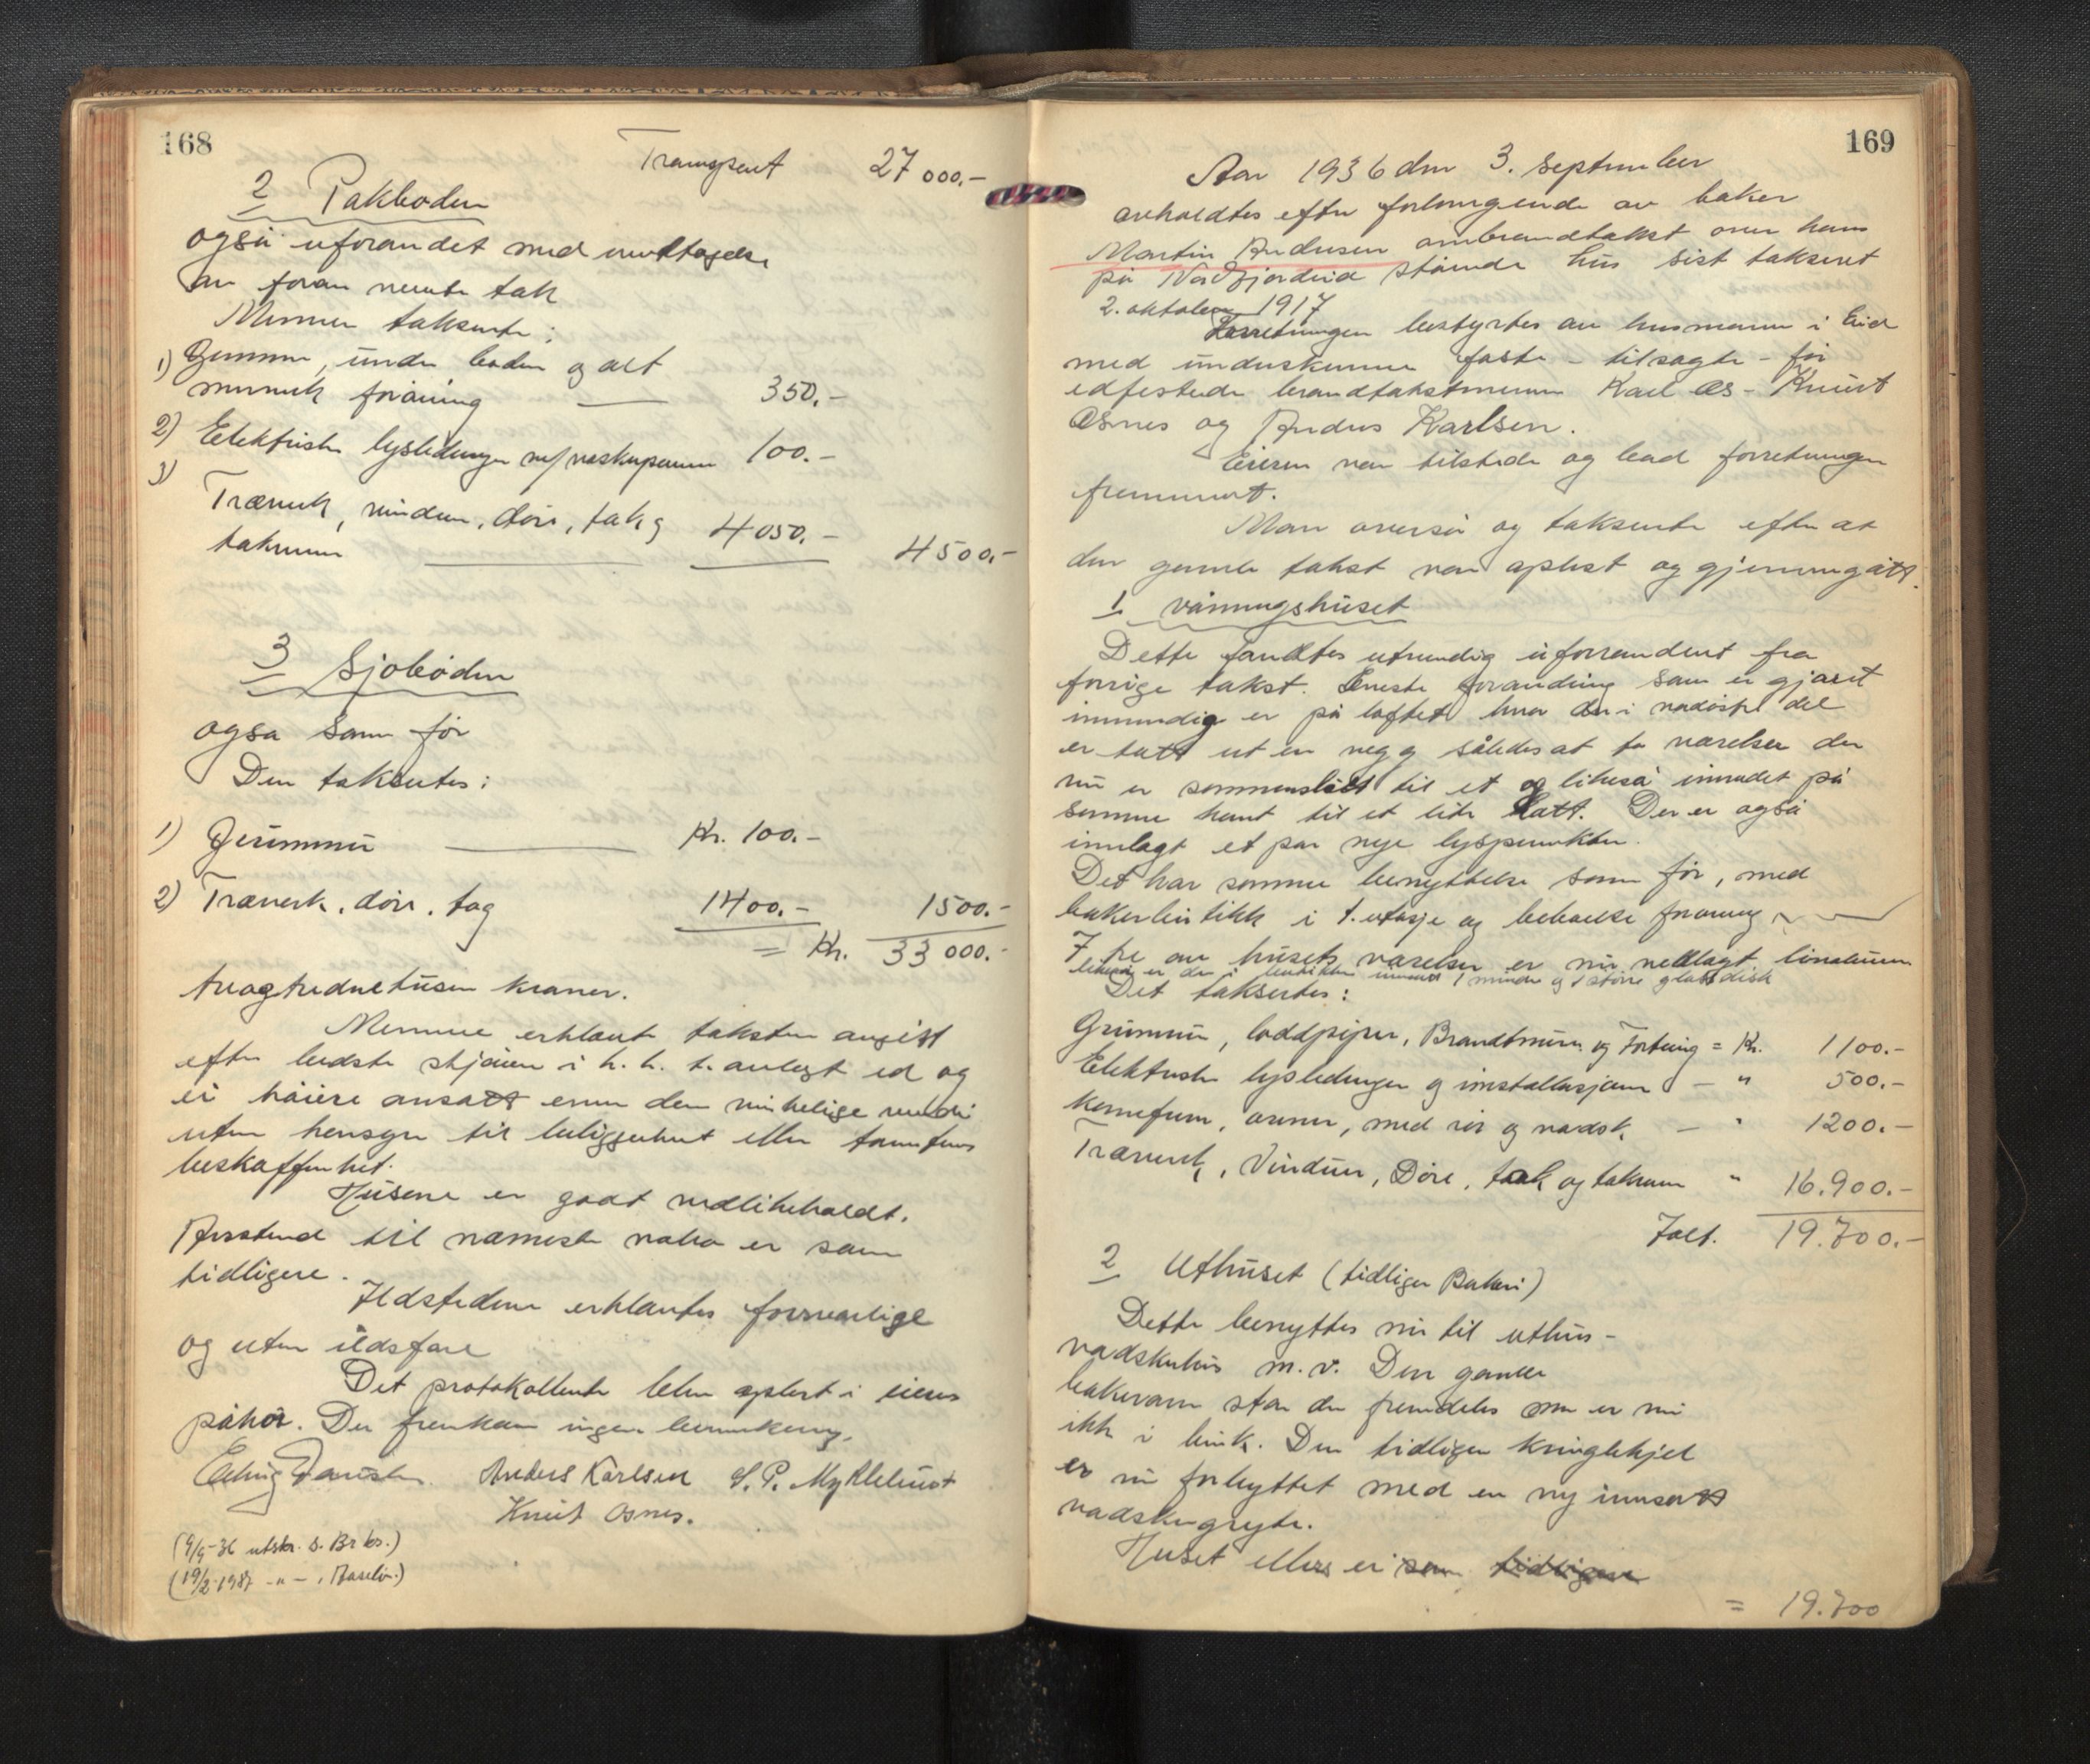 168
Transport 27 000.-
2 Pakboden
også uforandret med undtagelse
av foran nevnte tak
Mennene takserte:
1) Grunmur, under boden og alt
murverk forövrig — 350.-
2) Elektriske lysledninger m/neskuperum 100.-
3) Træverk, vinduer, döre, tak og
takrenner — 4 050.- 4 500.-
3 Sjoboden
ogsa som för
Den takseres:
1) Grunnmur — Kr. 100.-
2) Træverk, döre, tag 1400.- 1500.-
= Kr. 33 000.-
treogtredvetusen kroner.
Mennene erklærte taksten avgitt
efter bedste skjönn i h. h. t. avlagt ed og
ei höiere ansatt enn den virkelige verdi
uten hensyn til beliggenhet eller tomtens
beskaffenhet.
Husene er godt vedlikeholdt.
Avstand til nærmeste nabo er som
tidligere.
Ildstedene erklærtes forsvarlige
og uten ildsfare
Det protokollerte blev oplest i eierens
påhör. Der fremkom ingen bemerkning.
Anders Karlsen S. P. Myklebust
Knut Osnes.
(9/9-36 utskr. s. Br ks.)
(19/2-1937 -"-,
169
Aar 1936 den 3. september
avholdtes efter forlangende av baker
Martin Andersen ombrandtakst over hans
på Nordfjordeid stående hus sist taksert
2. oktober 1917
Forretningen bestyrtes av lensmannen i Eid
med underskrevne faste - tilsagte - för
edfestede brandtakstmenn Karl Os - Knut
Osnes og Anders Karlsen.
Eieren var tilstede og bad forretningen
fremmet.
Man överså og takserte efter at
den gamle takst var oplest og gjennemgått.
1 våningshuset
Dette fandtes utvendig uforandret fra
forrige takst. Eneste forandring som er gjort
innvendig er på loftet hvor der i nordöstre del
er tatt ut en vegg således at to værelser der
nu er sammenslått til et og likeså innredet på
samme kant til et lite Katt. Der er også
innlagt et par nye lyspunkter.
Det har samme benyttelse som för, med
bakerbutikk i 1. etasje og beboelse forövrig
7 re av husets værelser er nu nedlagt linoleum
likeså er der i butikken innsatt 1 mindre og 1 större glassdisk
Det taksertes:
Grunmur, loddpiper, Brandtmure og Fortring = Kr. 1100.-
Elektriske lysledninger og installasjoner - " 500.-
Kornfurer, ovner, med rör og vadsk. - " 1200.-
Træverk, Vinduer, Döre, tak og takrenner " 16.900.-
Ialt. 19.700.-
2 Uthuset (tidligere Bakeri)
Dette benyttes nu til uthus-
vadskehus m.v. Den gamle
bakerovn står der fremdeles men er nu
ikke i bruk. Den tidligere kringlekjel
er nu forbyttet med en ny innsatt
vadskegryte.
Huset ellers er som tidligere
= 19.700